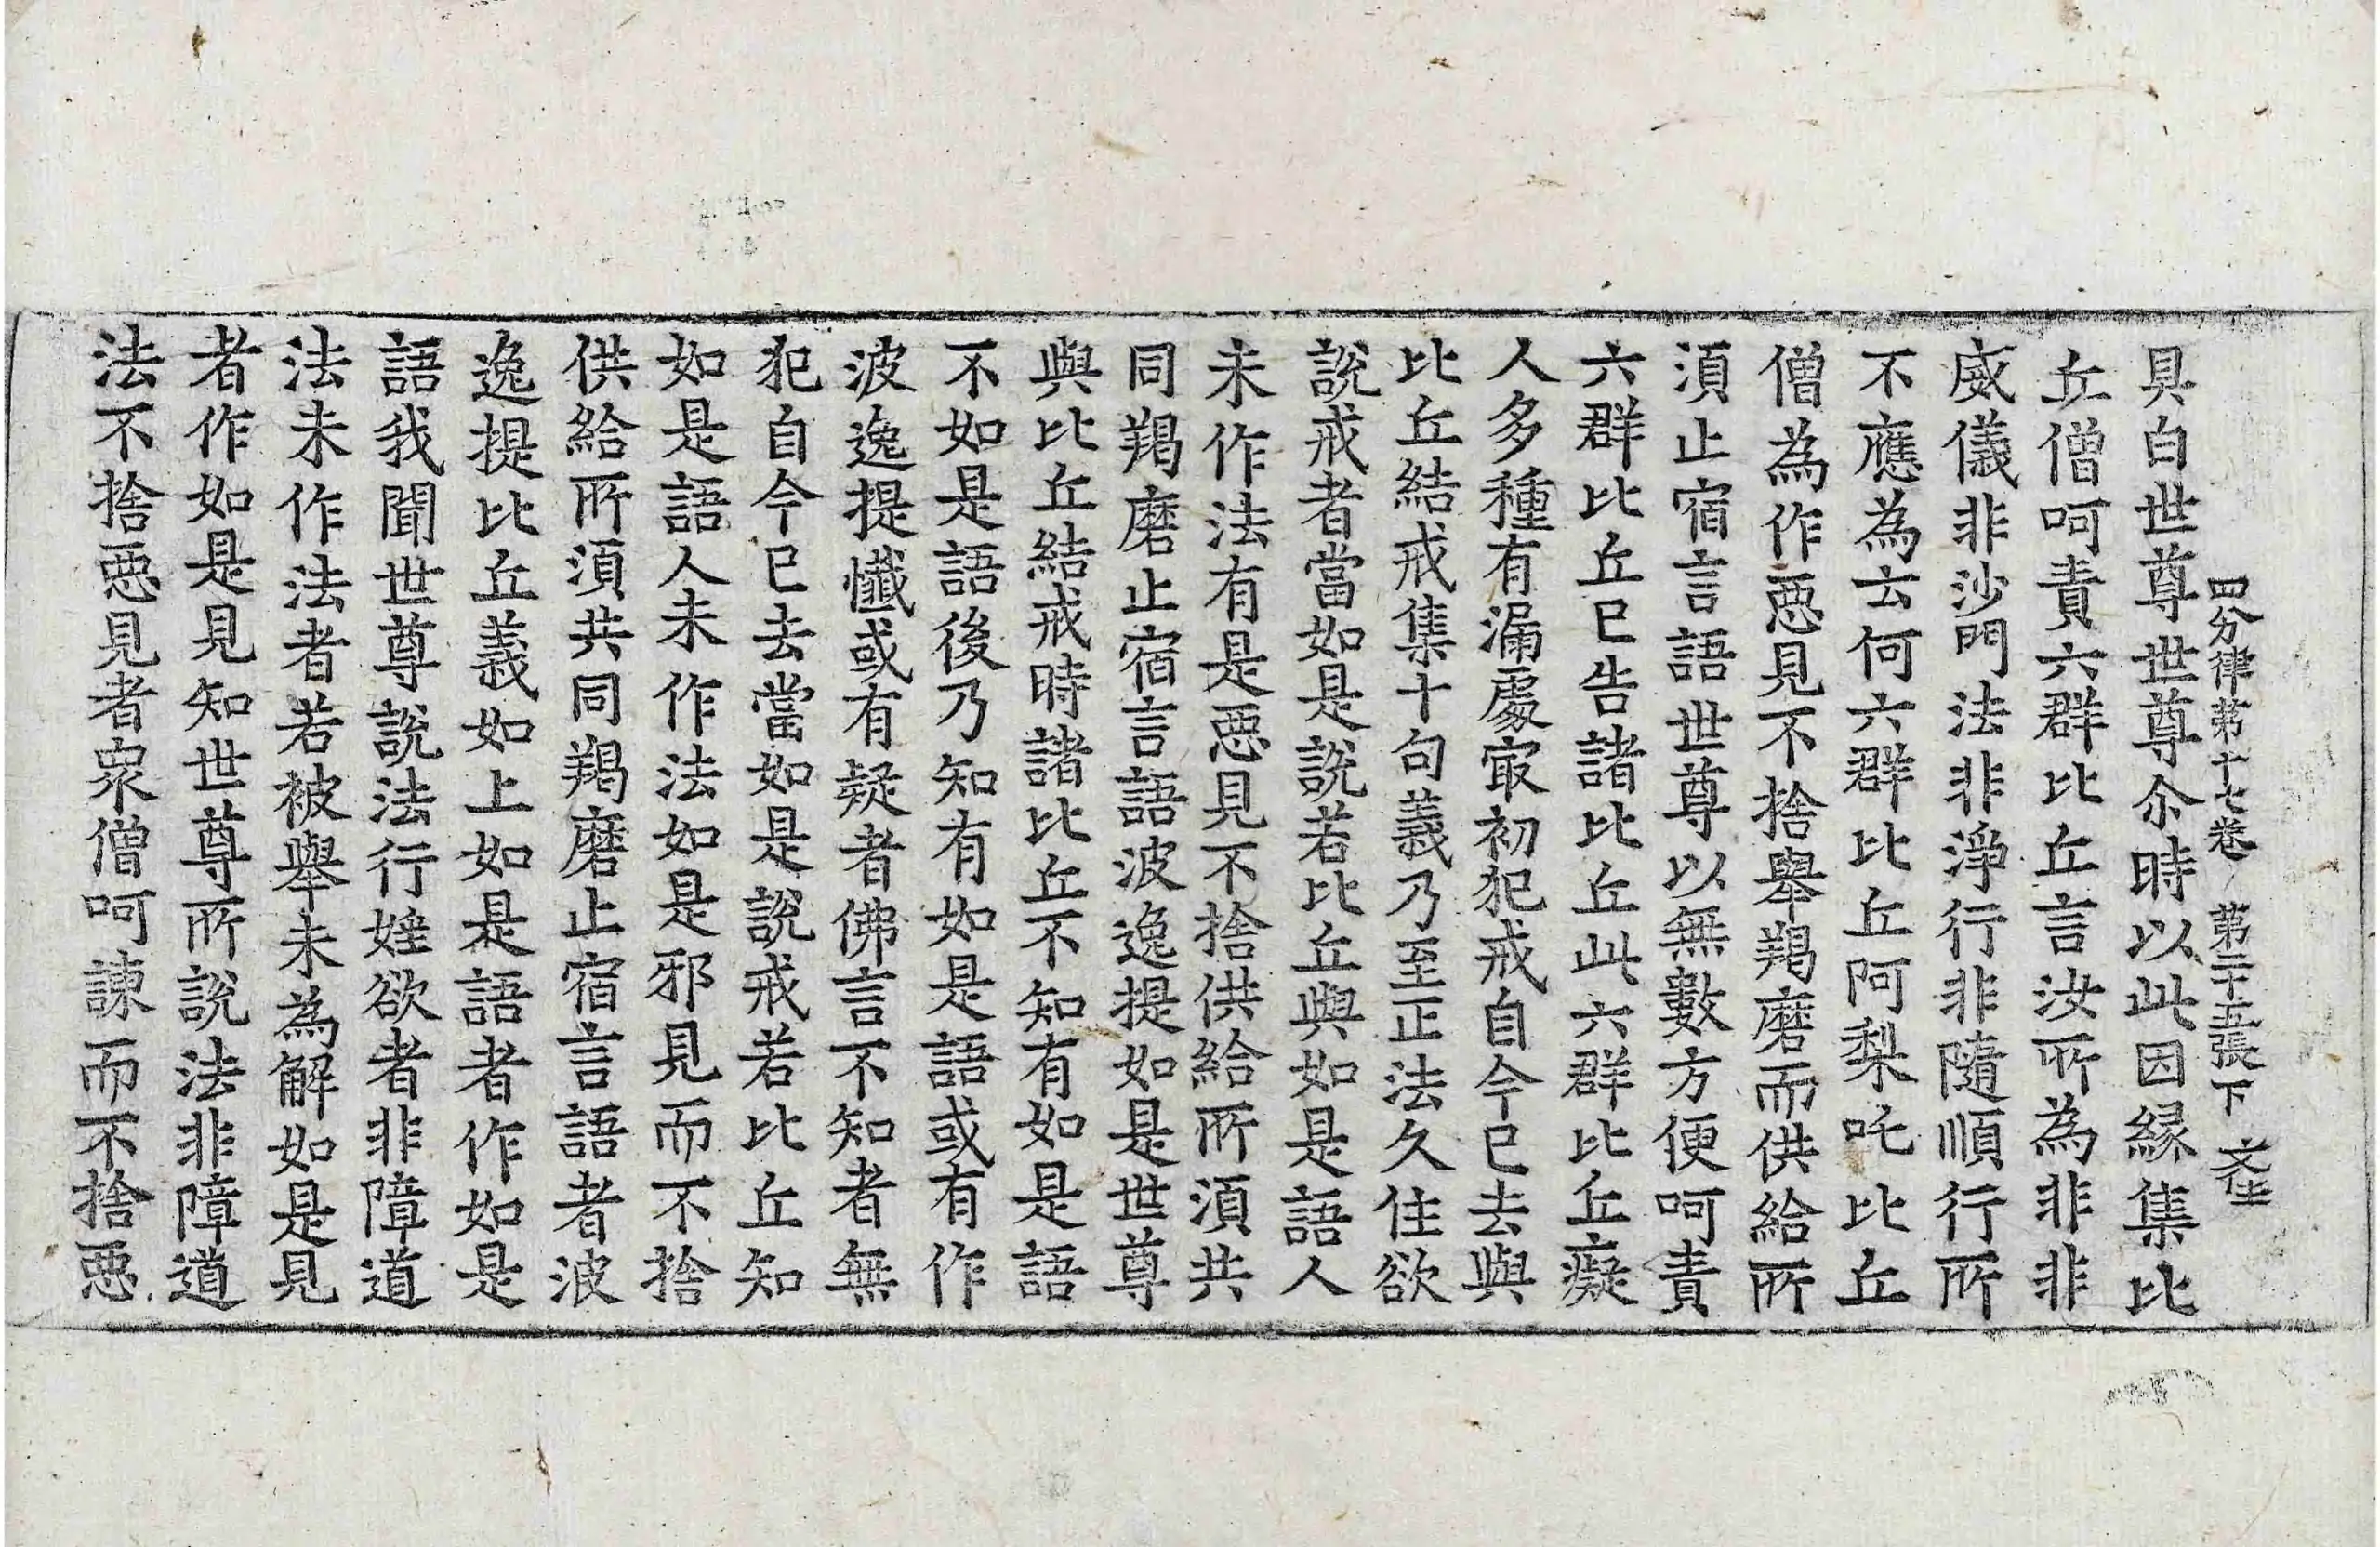 四分律第十七卷 第二十五張 下
具白世尊世尊尒時以此因縁集比
丘僧呵責六群比丘言汝所為非非
威儀非沙門法非淨行非隨順行所
不應為云何六群比丘阿梨吒比丘
僧為作惡見不捨舉羯磨而供給所
須止宿言語世尊以無數方便呵責
六群比丘已告諸比丘此六群比丘癡
人多種有漏處㝡初犯戒自今已去與
比丘結戒集十句義乃至正法久住欲
說戒者當如是說若比丘與如是語人
未作法有是惡見不捨供給所須共
同羯磨止宿言語波逸提如是世尊
與比丘結戒時諸比丘不知有如是語
不如是語後乃知有如是語或有作
波逸提懺或有疑者佛言不知者無
犯自今已去當如是說戒若比丘知
如是語人未作法如是邪見而不捨
供給所須共同羯磨止宿言語者波
逸提比丘義如上如是語者作如是
語我聞世尊說法行婬欲者非障道
法未作法者若被舉未為解如是見
者作如是見知世尊所說法非障道
法不捨惡見者衆僧呵諫而不捨惡